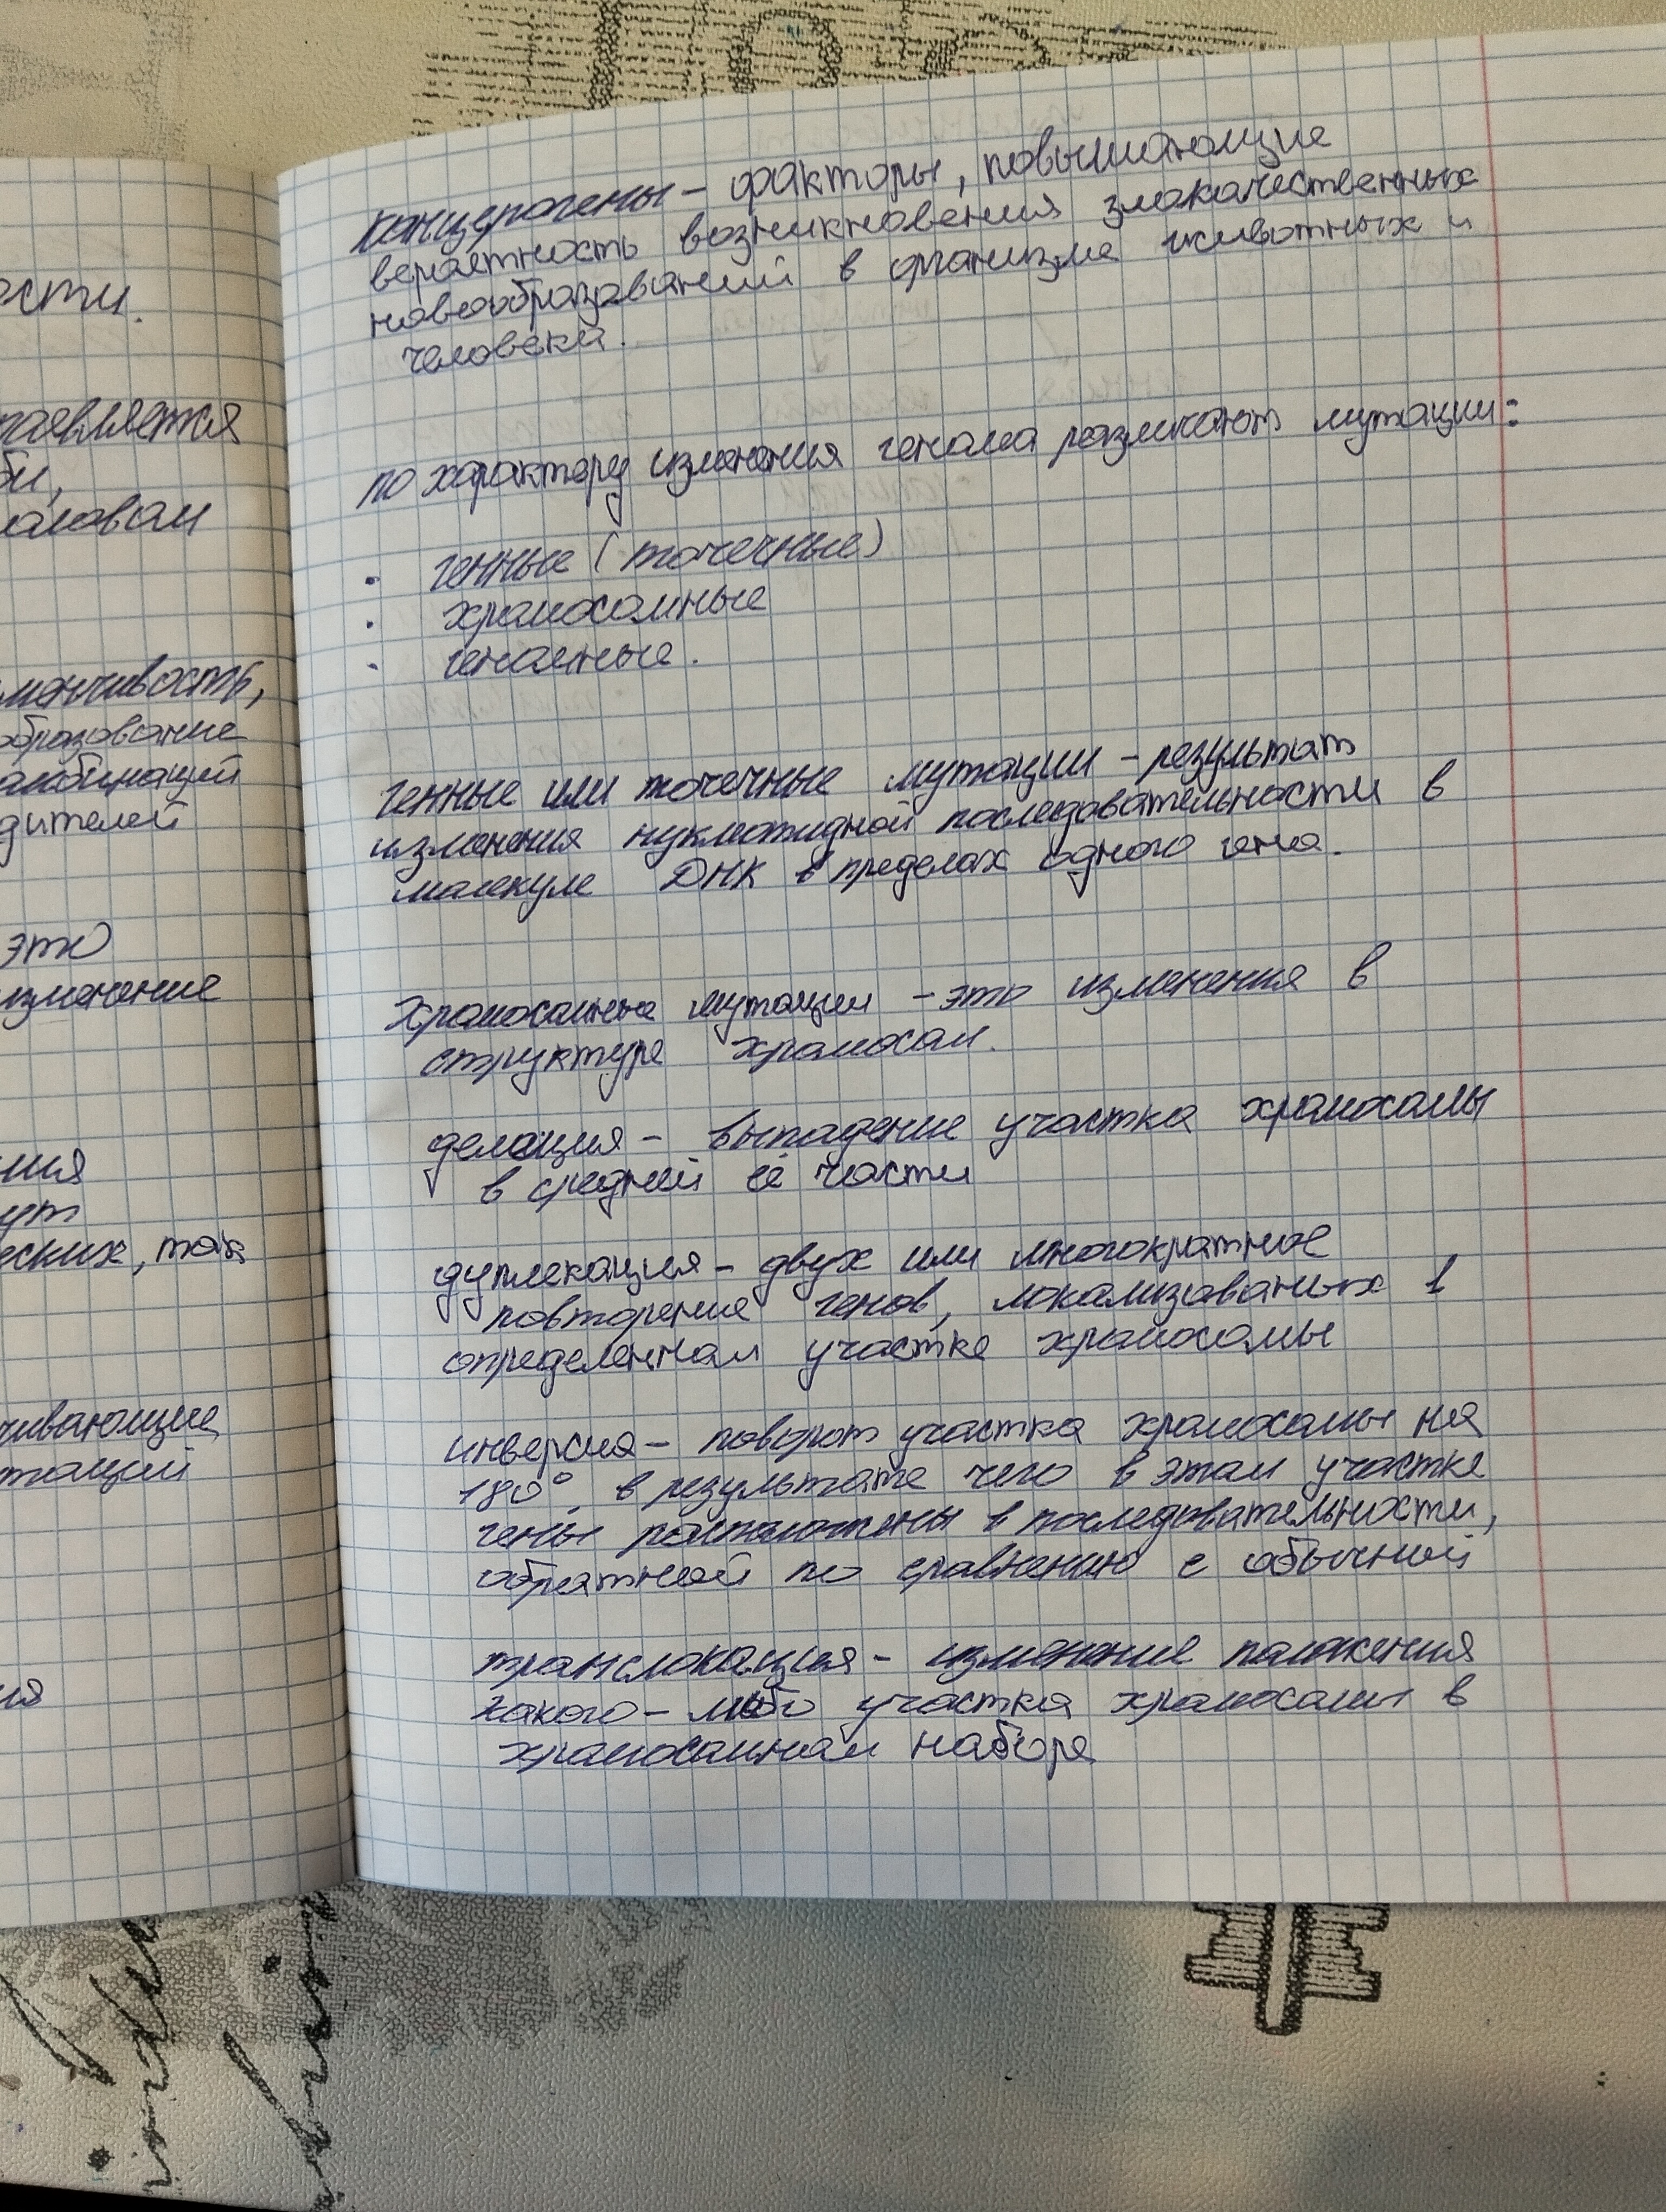 ости.
является
би,
аловам
менчивость,
образование
амбинаций
дителей
это
изменение
ния
ут
еских, так
чивающие
таций
ия
Канцерогены - факторы, повышающие
вероятность возникновения злокачественных
новообразований в организме животных и
человека.
по характеру изменения генома различают мутации:
· генные (точечные)
· хромосомные
· геномные.
Генные или точечные мутации - результат
изменения нуклеотидной последовательности в
молекуле ДНК в пределах одного гена.
Хромосомные мутации - это изменения в
структуре хромосом.
делеция - выпадение участка хромосомы
в средней её части
дуплекация - двух или многократное
повторение генов, локализованых в
определенном участке хромосомы
инверсия - поворот участка хромосомы на
180°, в результате чего в этом участке
гены расположены в последовательности,
обратной по сравнению с обычной
транслокация - изменение положения
какого-либо участка хромосомы в
хромосомном наборе